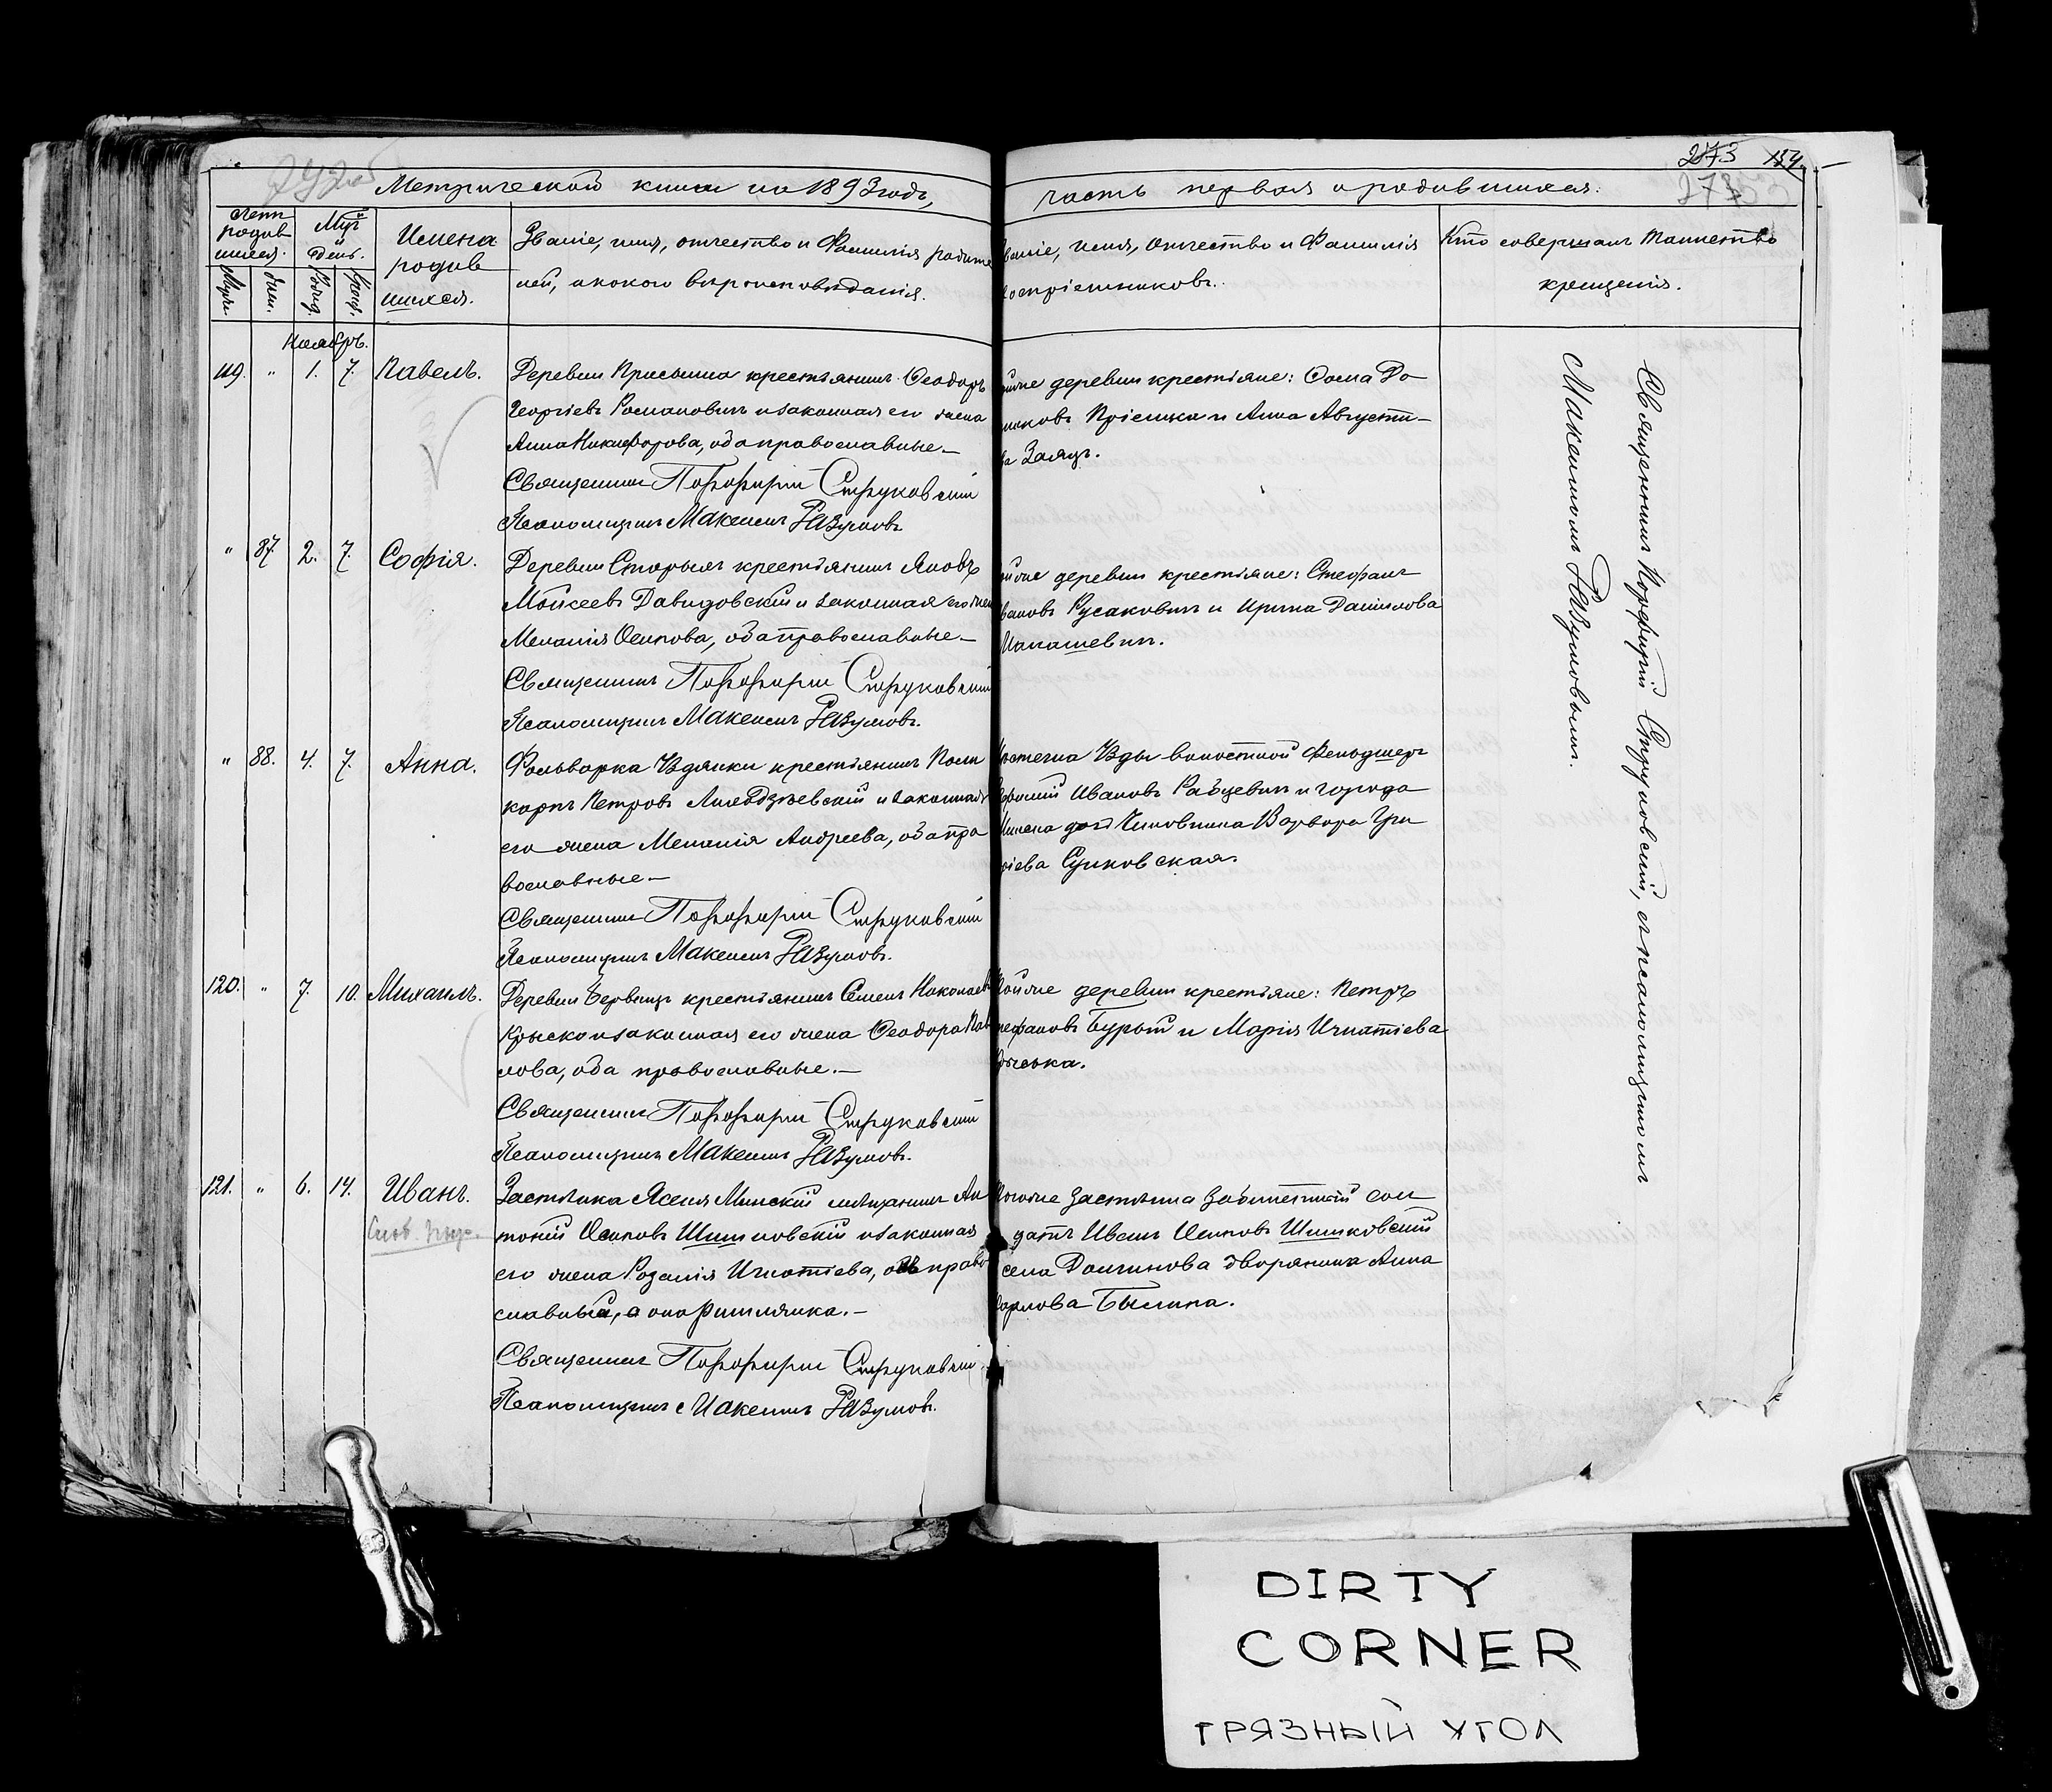 273 154
273
Метрической книги на 1893 годъ,
часть первая о родившихся.
Счетъ родив шихся.
Муж. Жен.
Мцъ и день.
Рожд. Крещ.
Имена
родив
шихся.
Званіе, имя, отчество и Фамилія родите
лей, и какого вѣроисповѣданія.
Званіе, имя, отчество и Фамилія
воспріемниковъ.
Кто совершалъ Таинство
крещенія.
Ноябрь.
119. " 1. 7. Павелъ.
Деревни крестьянинъ Ѳеодоръ
Георгіевъ Романовичъ и законная его жена
Анна Никифорова, оба православные.—
Священникъ Порфирій Струковскій
Псаломщикъ Максимъ Разумовъ
той же деревни крестьяне: Ѳома До
миковъ Пріемка и Анна Августи-
ва Заяцъ.
" 87. 2. 7. Софія.
Деревни крестьянинъ Яковъ
Моисеевъ Давидовскій и законная его жена
Меланія Осипова, оба православные.—
Священникъ Порфирій Струковскій
Псаломщикъ Максимъ Разумовъ.
той же деревни крестьяне: Стефанъ
Ивановъ Русаковичъ и Ирина Даніилова
Макашевичъ.
" 88. 4. 7. Анна.
Фольварка Уздянки крестьянинъ Поли
карпъ Петровъ и законная
его жена Меланія Андреева, оба пра
вославные.—
Священникъ Порфирій Струковскій
Псаломщикъ Максимъ Разумовъ.
Мѣстечка Узды волостной Фельдшеръ
Ивановъ Рабцевичъ и города
Минска дочь Чиновника Варвара Гри
горіева Сулковская.
120. " 7. 10. Михаилъ.
Деревни крестьянинъ Семенъ Николаевъ
Крыско и законная его жена Ѳеодора Пав
лова, оба православные.—
Священникъ Порфирій Струковскій
Псаломщикъ Максимъ Разумовъ.
Той же деревни крестьяне: Петръ
Стефановъ Бурый и Марія Игнатіева
121. " 6. 14. Иванъ.
Застѣнка Ясеня Минскій мѣщанинъ Ан
тоній Осиповъ Шишковскій и законная
его жена Розалія Игнатіева, онъ право
славный, а она Римлянка.—
Священникъ Порфирій Струковскій
Псаломщикъ Максимъ Разумовъ.
Того же Застѣнка Забилетный сол
датъ Иванъ Осиповъ Шишковскій
села Долгинова дворянка Анна
Карлова Былина.
Священникъ Порфирій Струковскій, съ псаломщикомъ
Максимомъ Разумовымъ.
DIRTY
CORNER
ГРЯЗНЫЙ УГОЛ